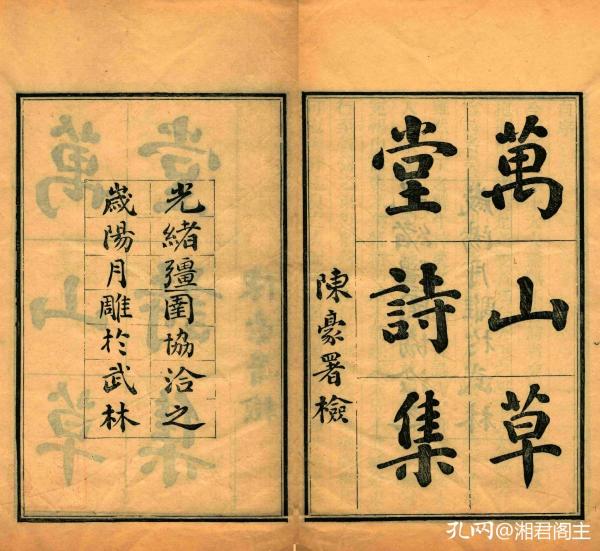 萬山草
堂詩集
陳豪署檢
光緒彊圉協洽之
歲陽月雕於武林
孔网@湘君阁主